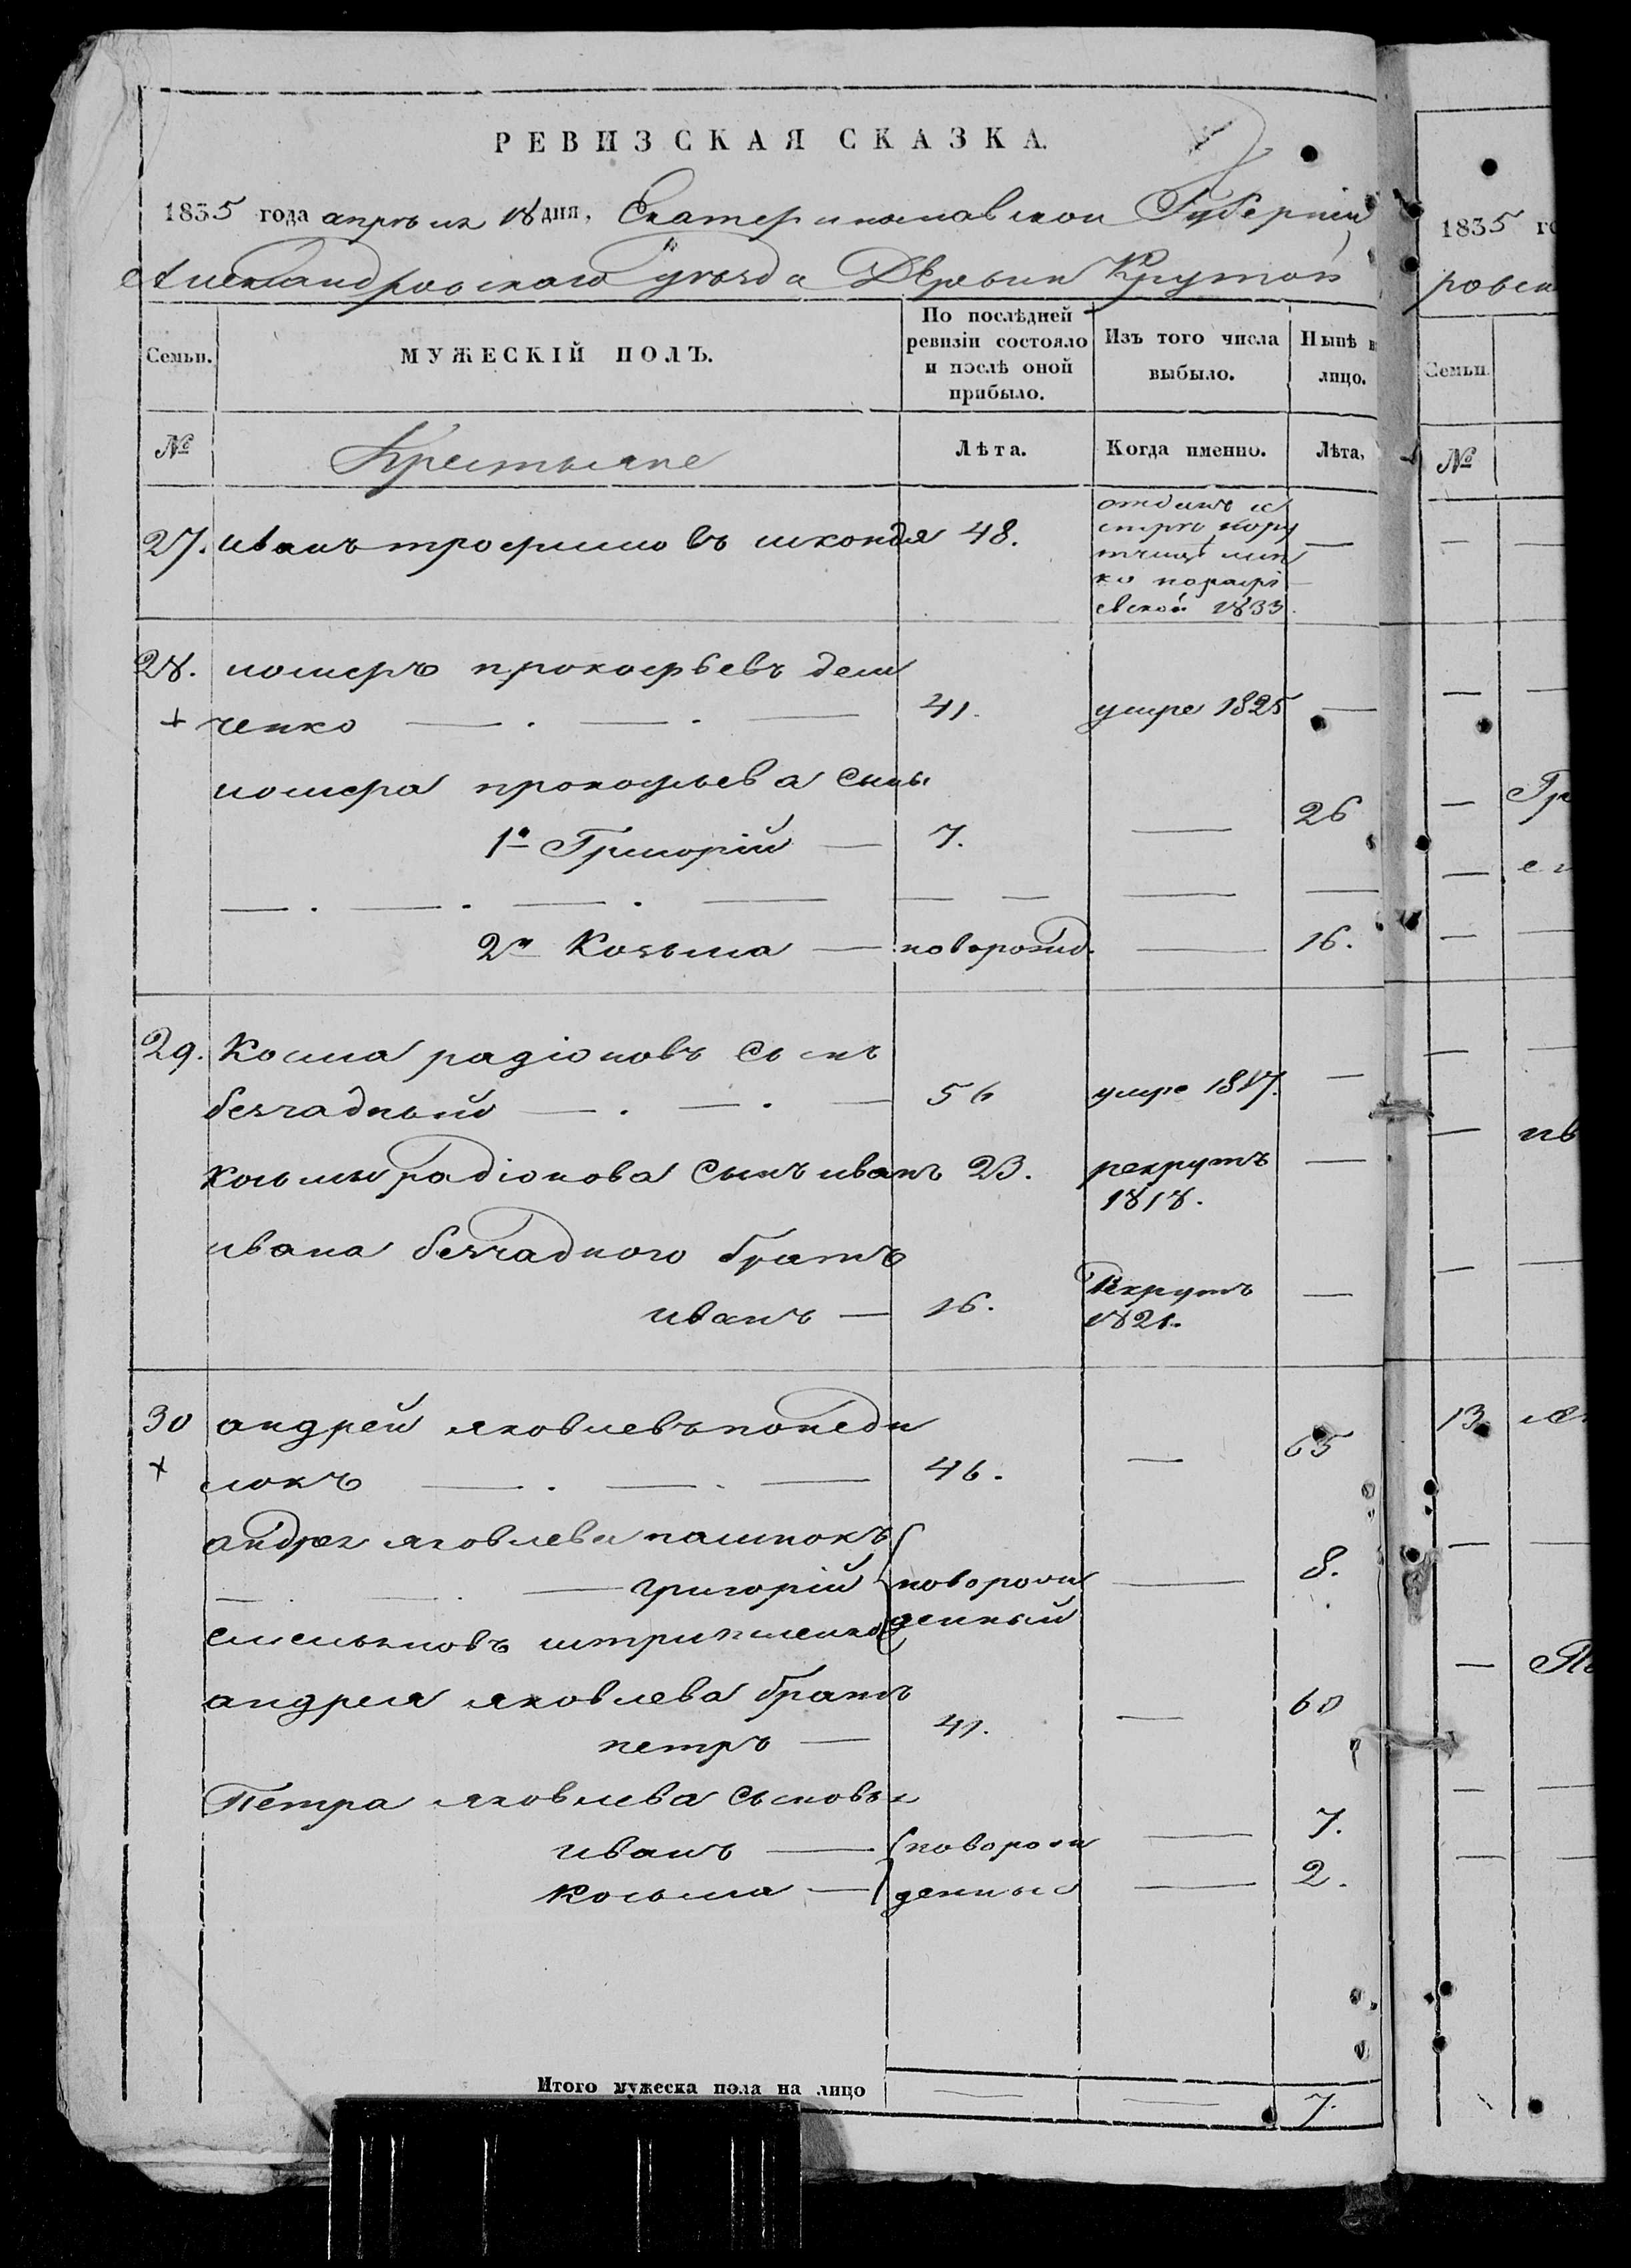 РЕВИЗСКАЯ СКАЗКА.
1835 года апреля 18 дня, Екатеринославской Губерніи
Александровского уезда Деревни Крутой
Семьи. МУЖЕСКІЙ ПОЛЪ. По послѣдней ревизіи состояло и послѣ оной прибыло. Изъ того числа выбыло. Нынѣ въ лицо.
№ Крестьяне Лѣта. Когда именно. Лѣта.
27. иванъ трофимовъ шкондя 48. отданъ 1833.
28. гомеръ прокофьевъ дем
ченко 41. умре 1825
гомера прокофьева сыны
1й Григорій 7. 26
2й Козьма новорожд. 16.
29. Косма радіоновъ сынъ
безчадный 56 умре 1817.
козьмы радіонова сынъ иванъ 23. рекрутъ
1818.
ивана безчадного братъ
иванъ 16. Рекрутъ
1821.
30 андрей яковлевъ понеди
локъ 46. 65
андрея яковлева
григорій новорож 8.
емельяновъ денный
андрея яковлева братъ
петръ 41. 60
Петра яковлева сыновья
иванъ новорож 7.
косьма денные 2.
Итого мужеска пола на лицо 7.
1835 го
ровск
Семьи.
№
Гр
13